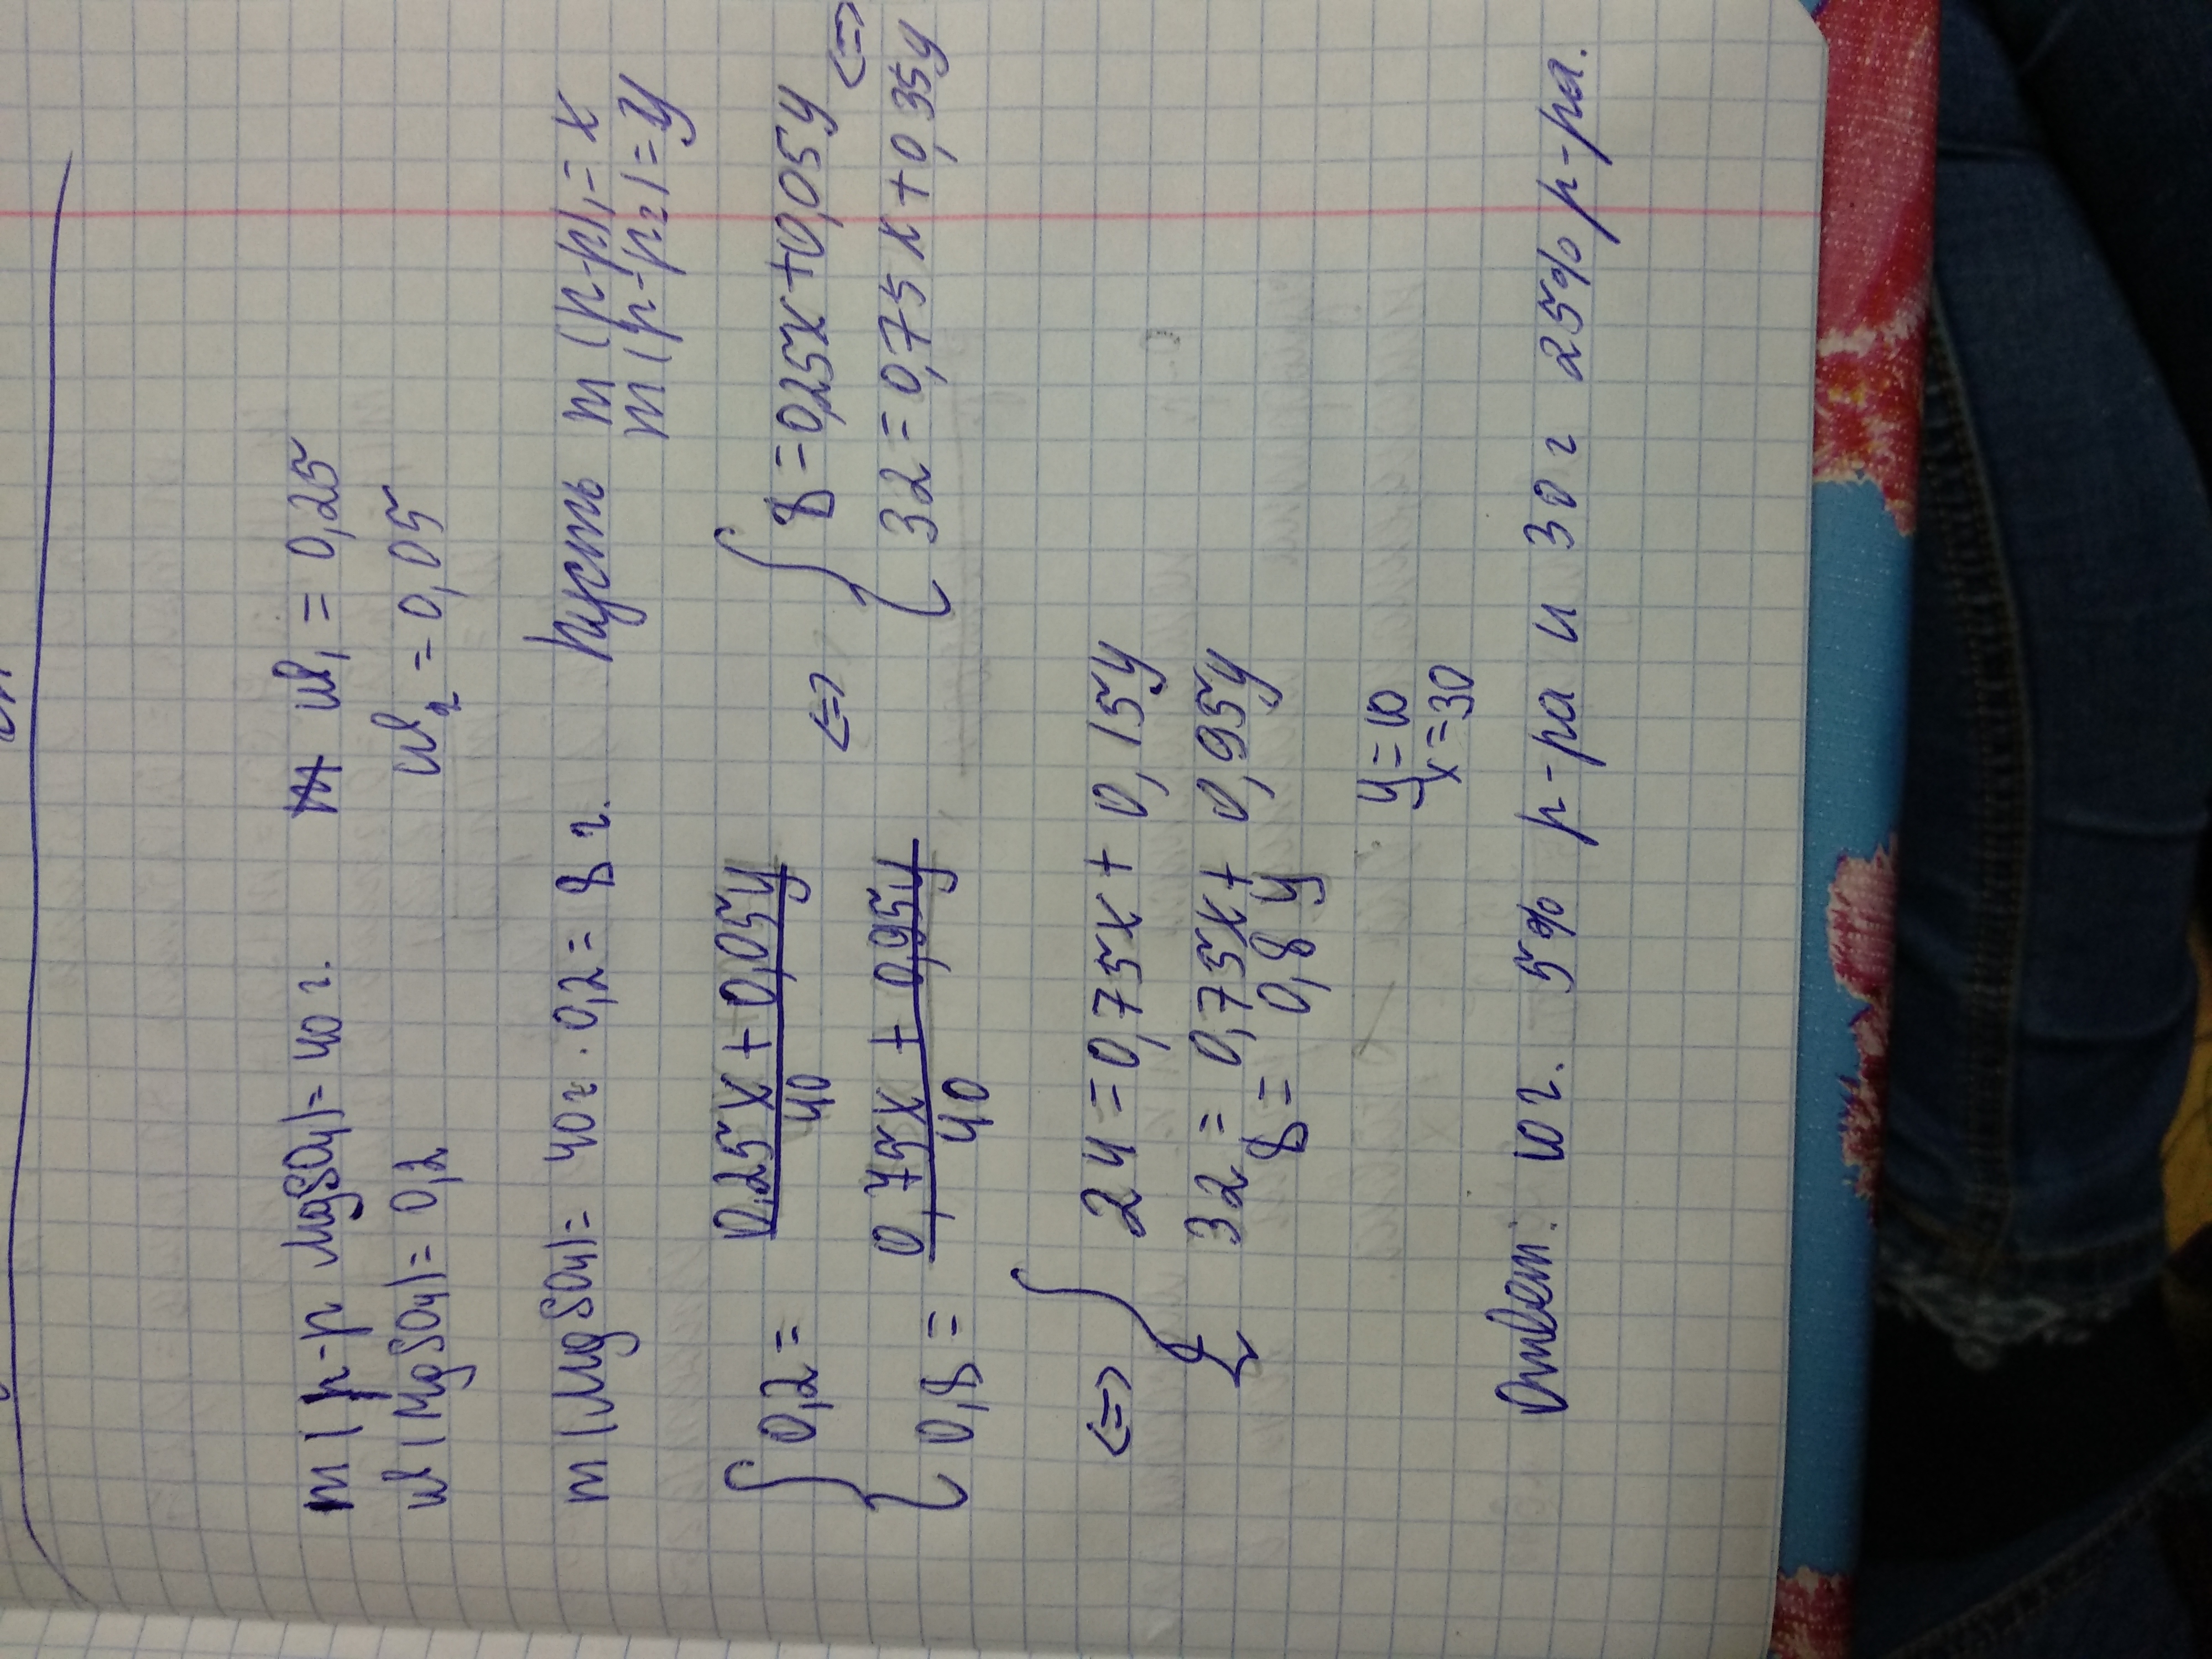 m(р-р MgSO4)= 40 г. w1 = 0,25
w(MgSO4)= 0,2 w2 = 0,05
m(MgSO4)= 40г · 0,2 = 8 г. Пусть m (р-р)1 = x
m(р-р2)=y
0,2 = (0,25x + 0,05y)/40 <=> 8=0,25x+0,05y <=>
0,8 = (0,75x + 0,95y)/40 32=0,75x+0,35y
<=> 24=0,75x+ 0,15y
32 = 0,75x+ 0,95y
8= 0,8 y
y=10
x=30
Ответ: 10г. 5% р-ра и 30 г 25% р-ра.